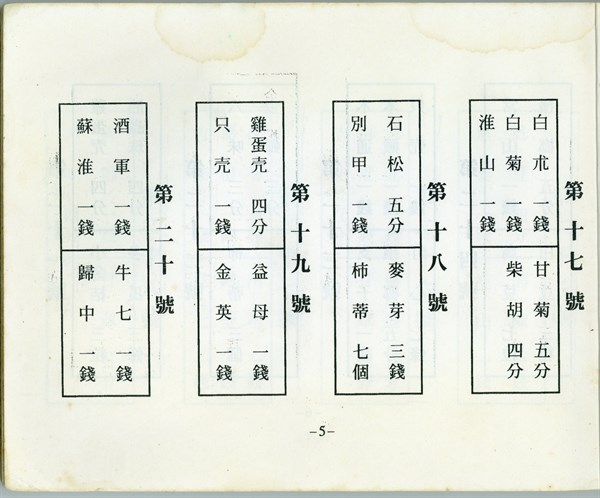 第十七號
白朮一錢
白菊一錢
淮山一錢
甘菊五分
柴胡四分
第十八號
石松五分
別甲一錢
麥芽三錢
柿蒂七個
第十九號
雞蛋壳四分
只壳一錢
益母一錢
金英一錢
第二十號
酒軍一錢
蘇淮一錢
牛七一錢
歸中一錢
–5–